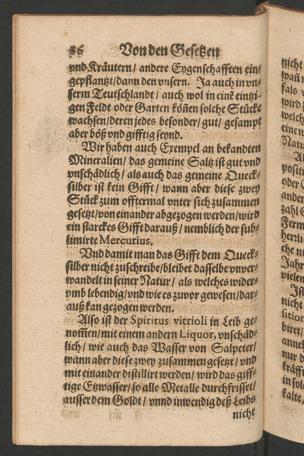 86 Von den Gesetzen
vnd Kräutern / andere Eygenschafften ein-
gepflantzt / dann den vnsern. Ja auch in vn-
serm Teutschlandt / auch wol in einē eintzi-
gen Feldt oder Garten köñen solche Stücke
wachsen / deren jedes besonder / gut / gesampt
aber böß vnd gifftig seynd.
Wir haben auch Exempel an bekandten
Mineralien / das gemeine Saltz ist gut vnd
vnschädlich / als auch das gemeine Queck-
silber ist kein Gifft / wann aber diese zwey
Stück zum offtermal vnter sich zusammen
gesetzt / von einander abgezogen werden / wird
ein starckes Gifft darauß / nemblich der sub-
limirte Mercurius.
Vnd damit man das Gifft dem Queck-
silber nicht zuschreibe / bleibet dasselbe vnver-
wandelt in seiner Natur / als welches wider-
vmb lebendig / vnd wie es zuvor gewesen / dar-
auß kan gezogen werden.
Also ist der Spiritus vitrioli in Leib ge-
nom̃en / mit einem andern Liquor, vnschäd-
lich / wie auch das Wasser von Salpeter /
wann aber diese zwey zusammen gesetzt / vnd
mit einander distillirt werden / wird das giff-
tige Etzwasser / so alle Metalle durchfrisset /
ausser dem Goldt / vnnd inwendig deß Leibs
nicht